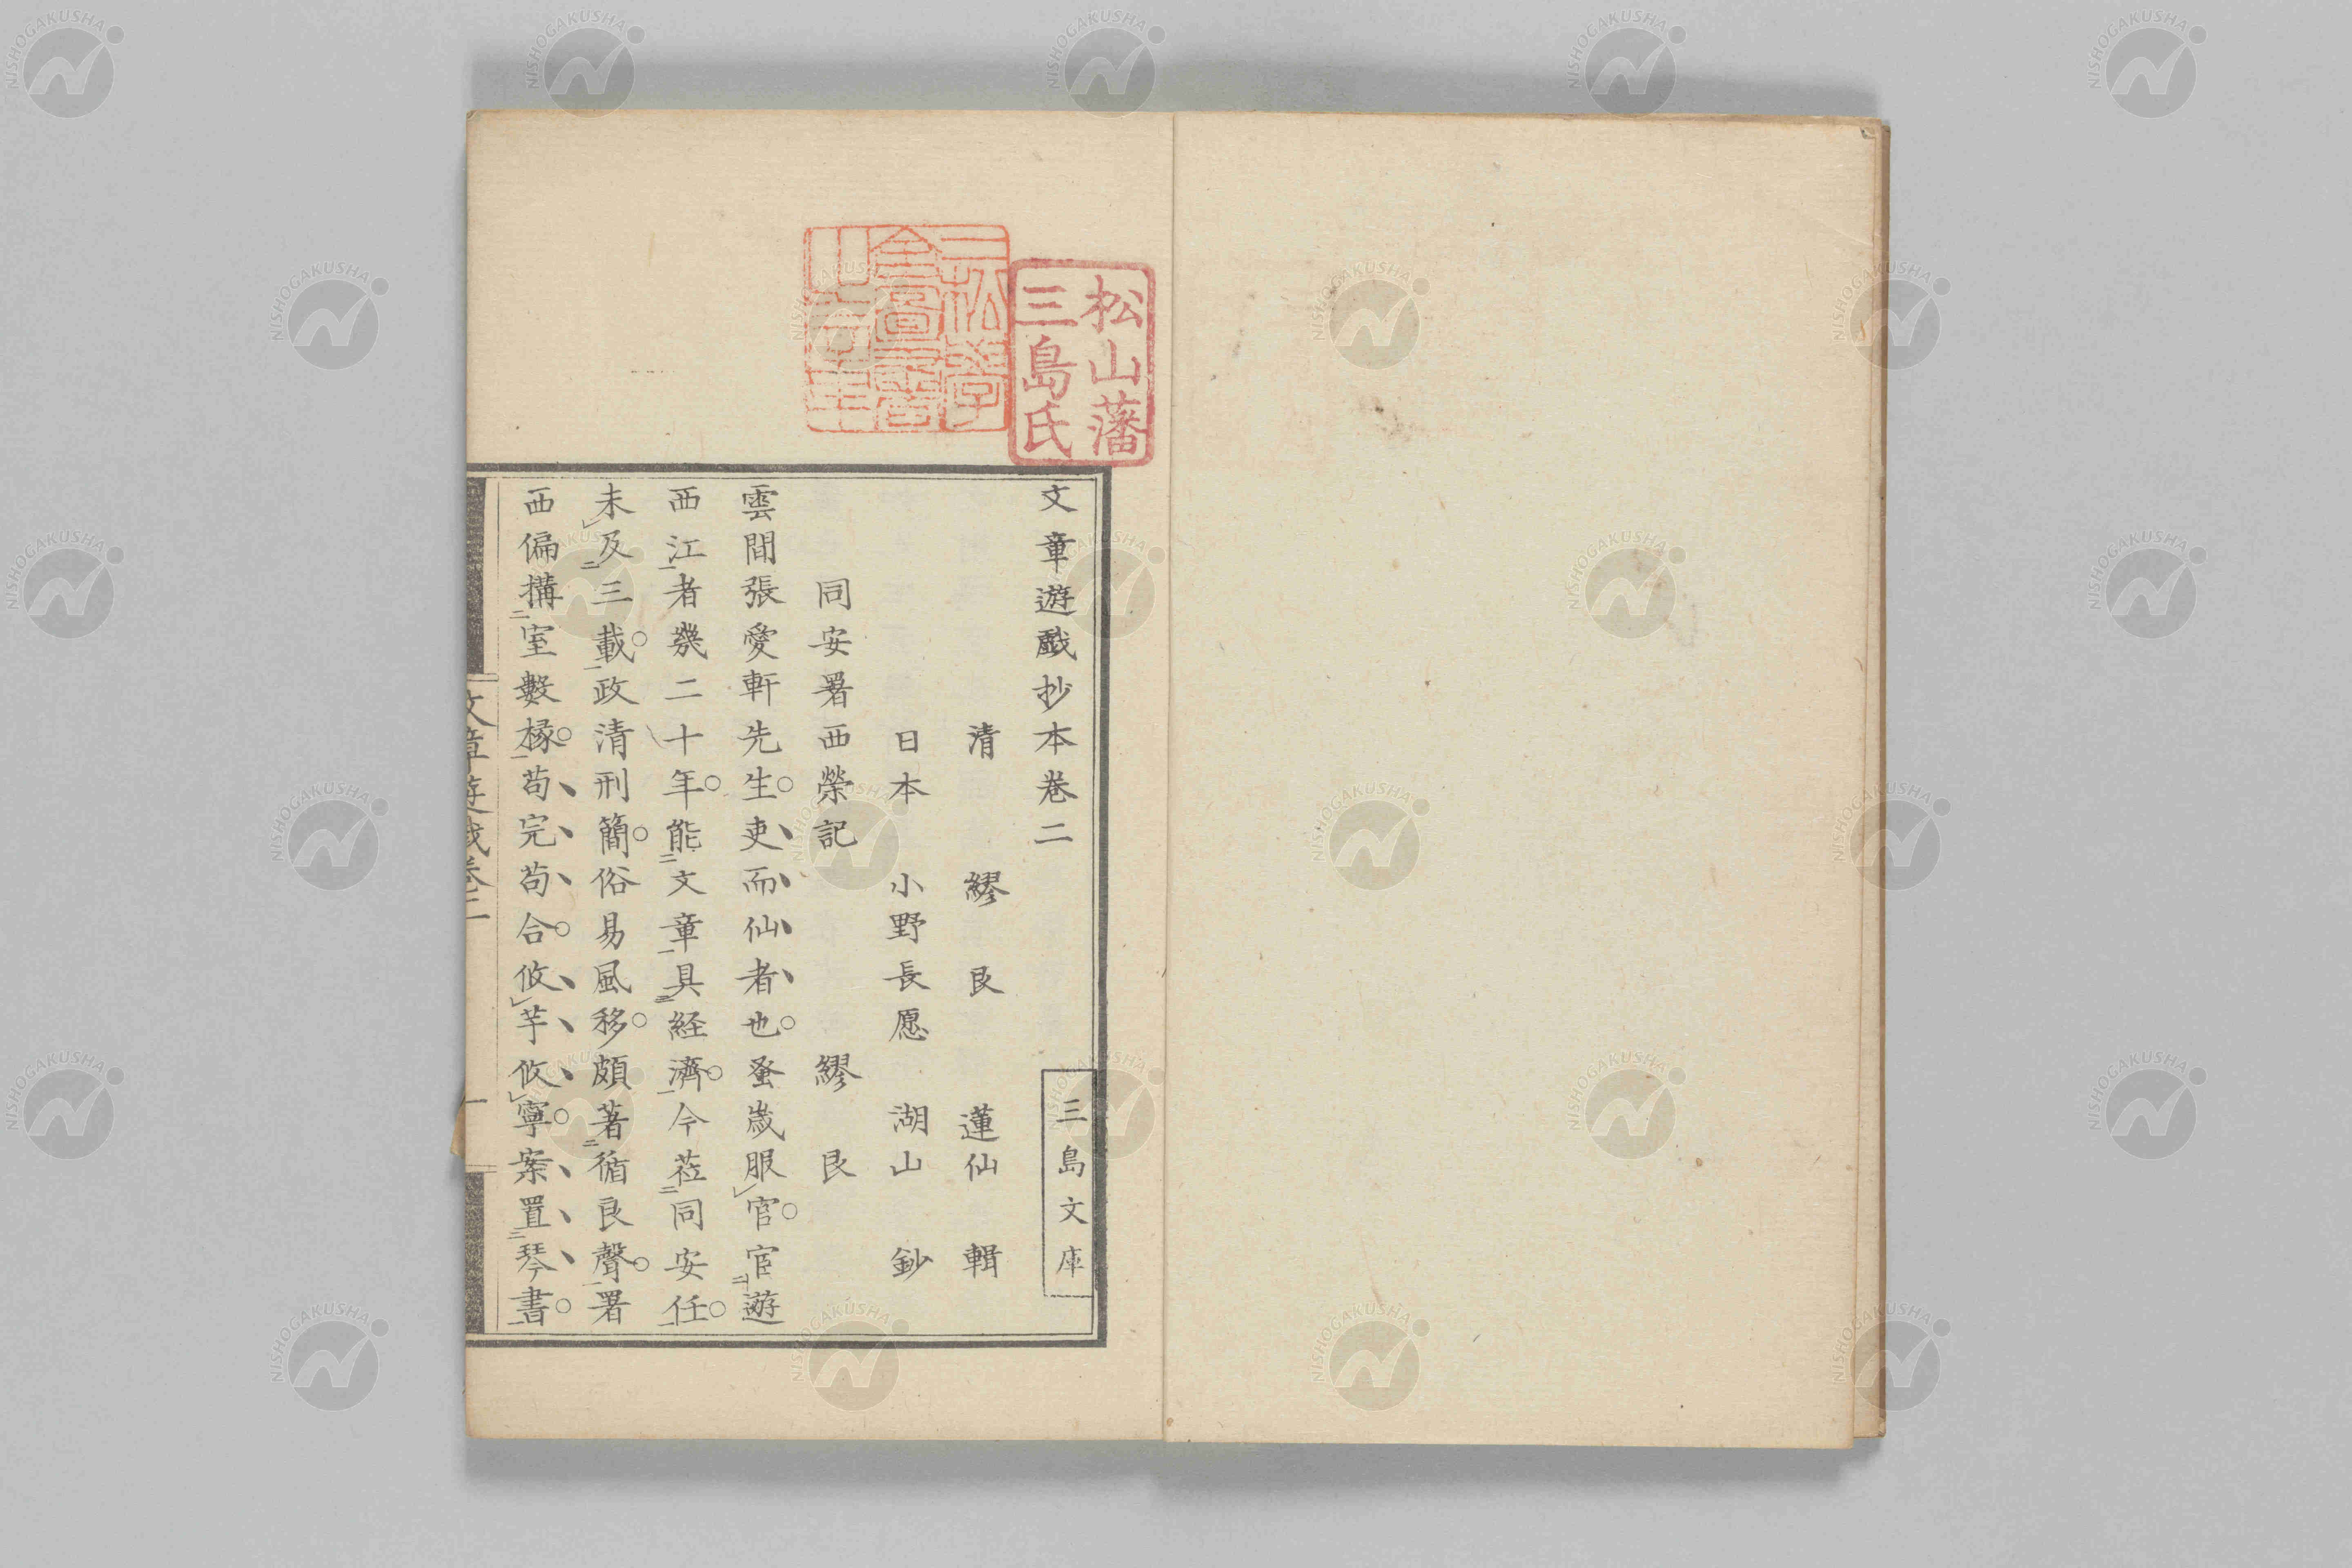 文章遊戲抄本巻二
三島文庫
清 繆艮 蓮仙 輯
日本 小野長愿 湖山 鈔
同安署西榮記 繆艮
雲間張愛軒先生。吏而仙者也。蚤歳服官。宦遊
西江者幾二十年。能文章具経濟。今莅同安任。
未及三載。政清刑簡。俗易風移。頗著循良聲。署
西偏搆室數椽。苟完苟合。攸芋攸寧。案置琴書。
松山藩
三島氏
二松學
舎圖書
文章遊戲巻二
一
NISHOGAKUSHA